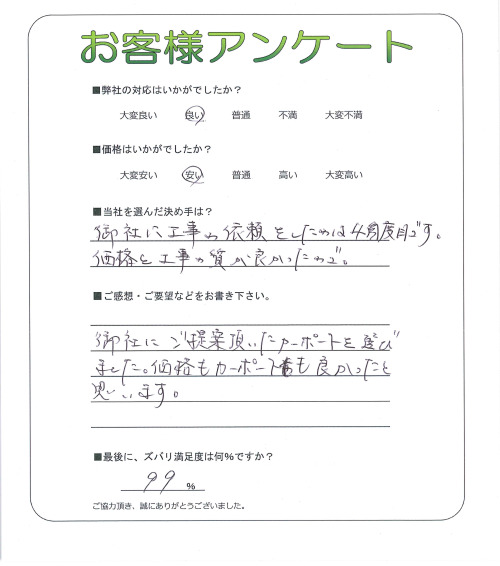 お客様アンケート
■弊社の対応はいかがでしたか？
大変良い 良い 普通 不満 大変不満
■価格はいかがでしたか？
大変安い 安い 普通 高い 大変高い
■当社を選んだ決め手は？
御社に工事の依頼をしたのは4度目です。
価格と工事の質が良かったので。
■ご感想・ご要望などをお書き下さい。
御社にご提案頂いたカーポートを選び
ました。価格もカーポートも良かったと
思います。
■最後に、ズバリ満足度は何%ですか？
99 %
ご協力頂き、誠にありがとうございました。